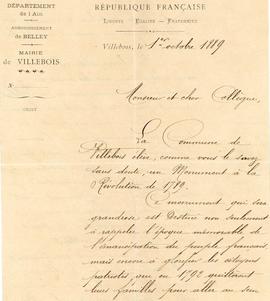 DÉPARTEMENT
de l'Ain
ARRONDISSEMENT
de BELLEY
MAIRIE
de VILLEBOIS
N.
OBJET
RÉPUBLIQUE FRANÇAISE
LIBERTÉ — ÉGALITÉ — FRATERNITÉ
Villebois, le 1er octobre 1889
Monsieur et cher Collègue,
La Commune de
Villebois élève, comme vous le savez
sans doute, un Monument à la
Révolution de 1789.
Ce monument qui sera
grandiose est Destiné non seulement
à rappeler l'époque mémorable de
l'émancipation du peuple français
mais encore à glorifier les citoyens
patriotes qui en 1792 quittèrent
leurs familles pour aller au sein